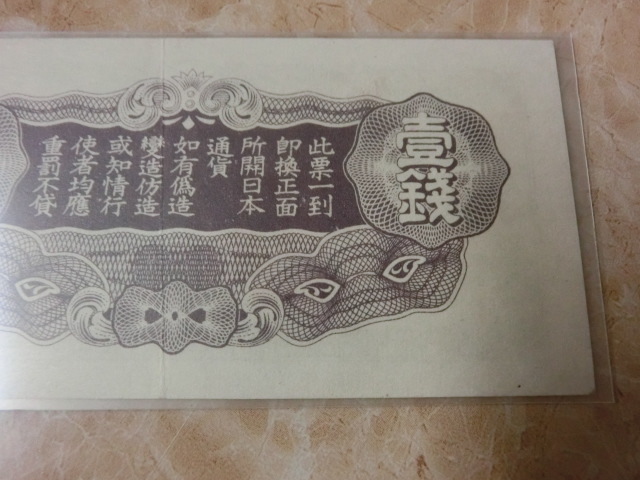 壹錢
此票一到
卽換正面
所開日本
通貨
如有僞造
變造仿造
或知情行
使者均應
重罰不貸